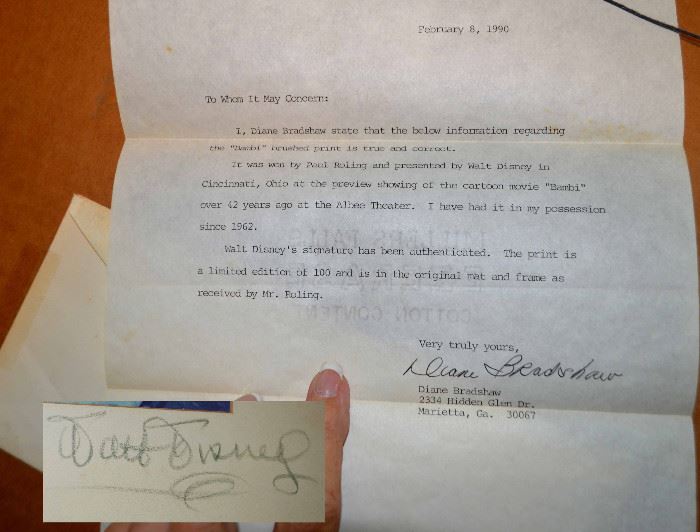 February 8, 1990
To Whom It May Concern:
I, Diane Bradshaw state that the below information regarding
the "Bambi" brushed print is true and correct.
It was won by Paul Roling and presented by Walt Disney in
Cincinnati, Ohio at the preview showing of the cartoon movie "Bambi"
over 42 years ago at the Albee Theater. I have had it in my possession
since 1962.
Walt Disney's signature has been authenticated. The print is
a limited edition of 100 and is in the original mat and frame as
received by Mr. Roling.
COTTON CONTENT
Very truly yours,
Diane Bradshaw
Diane Bradshaw
2334 Hidden Glen Dr.
Marietta, Ga. 30067
Walt Disney